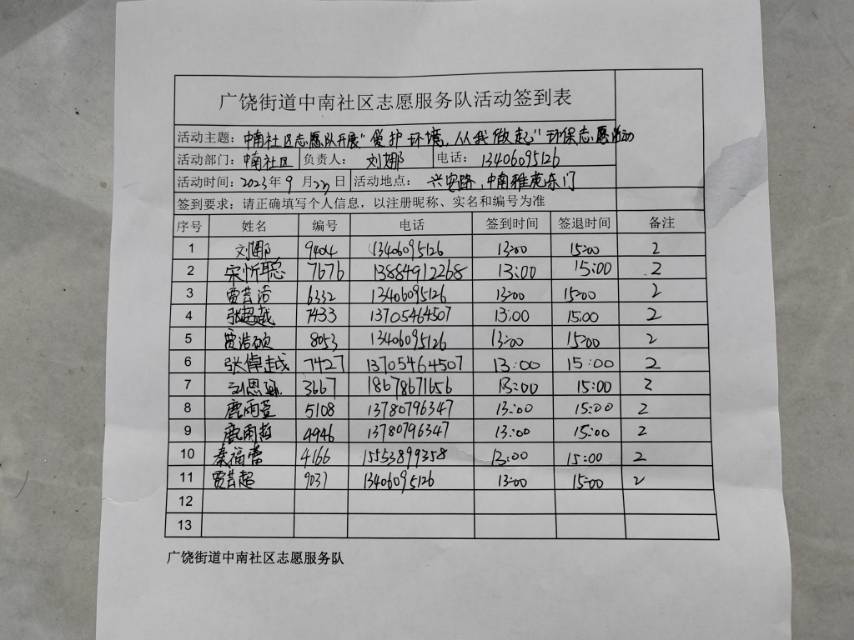 广饶街道中南社区志愿服务队活动签到表
活动主题：中南社区志愿队开展"爱护环境，从我做起"环保志愿活动
活动部门：中南社区 负责人： 刘娜 电话：13406095126
活动时间：2023年9月23日 活动地点： 兴安路，中南雅苑东门
签到要求：请正确填写个人信息，以注册昵称、实名和编号为准
序号 姓名 编号 电话 签到时间 签退时间 备注
1 刘娜 9404 13406095126 13:00 15:00 2
2 宋忻聪 7676 13884912268 13:00 15:00 2
3 贾昔浩 6332 13406095126 13:00 15:00 2
4 张超越 7433 13705464507 13:00 15:00 2
5 贾浩硕 8053 13406095126 13:00 15:00 2
6 张倬越 7427 13705464507 13:00 15:00 2
7 刘思 3667 18678671656 13:00 15:00 2
8 鹿雨萱 5108 13780796347 13:00 15:00 2
9 鹿雨 4946 13780796347 13:00 15:00 2
10 秦福蕾 4166 15553899358 13:00 15:00 2
11 贾昔超 9031 13406095126 13:00 15:00 2
12
13
广饶街道中南社区志愿服务队